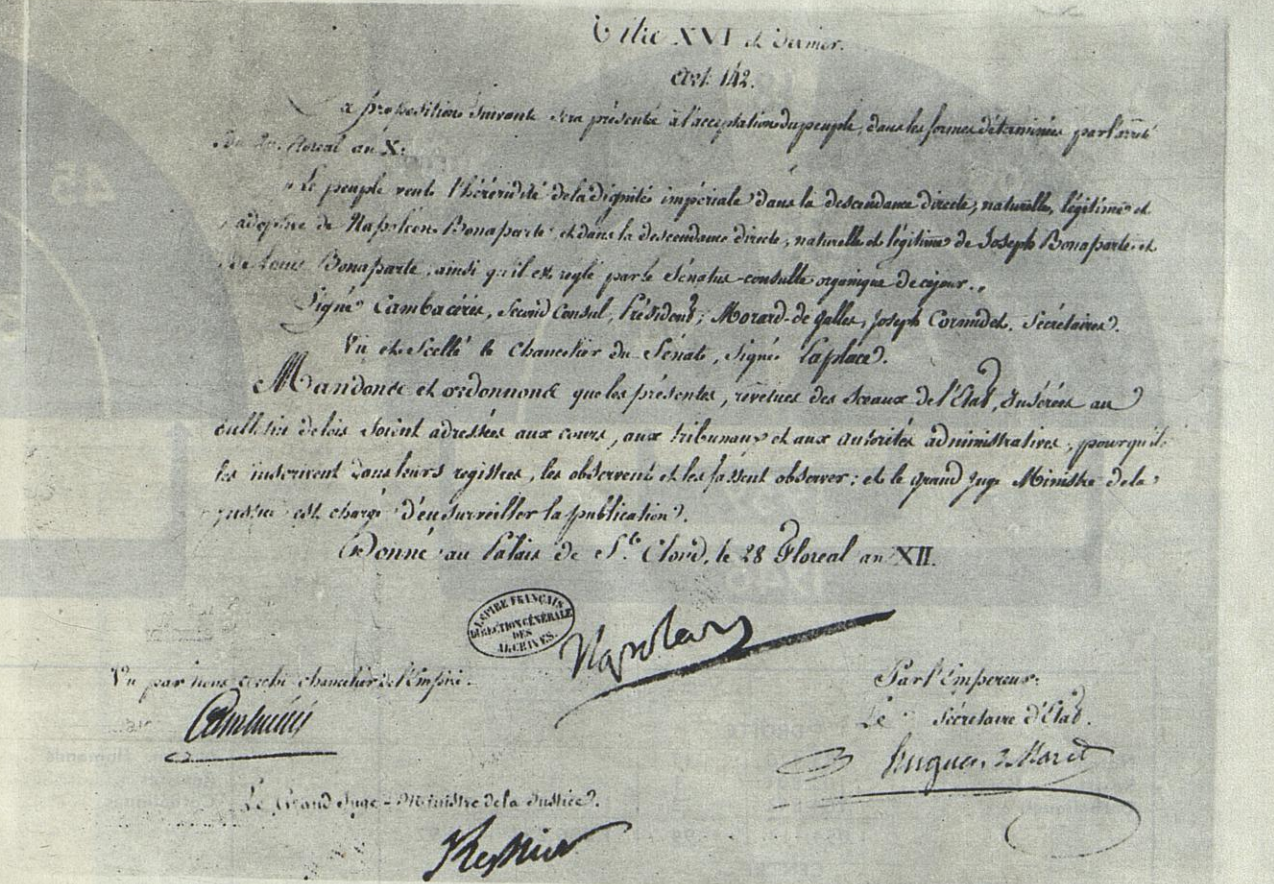 Titre XVI et dernier.
Art. 142.
La proposition suivante sera présentée à l'acceptation du peuple, dans les formes déterminées par l'arrêté
du 20 floreal an X:
"Le peuple veut l'hérédité de la dignité impériale dans la descendance directe, naturelle, légitime et
adoptive de Napoléon Bonaparte, et dans la descendance directe, naturelle et légitime de Joseph Bonaparte et
de Louis Bonaparte, ainsi qu'il est reglé par le Sénatus-consulte organique de ce jour."
Signé Cambacérès, Second Consul, Président; Morard-de galles, Joseph Cornudet, Secrétaires.
Vu et scellé le Chancelier du Sénat, Signé Laplace.
Mandons et ordonnons que les présentes, revêtues des sceaux de l'Etat, Insérées au
bulletin de lois soient adressées aux cours, aux tribunaux et aux autorités administratives, pour qu'ils
les inscrivent dans leurs registres, les observent et les fassent observer; et le grand Juge Ministre de la
justice est chargé d'en surveiller la publication.
Donné au Palais de St. Cloud, le 28 Floreal an XII.
EMPIRE FRANÇAIS
DIRECTION GÉNÉRALE
DES
ARCHIVES.
Napoleon
Vu par nous archi-chancelier de l'Empire.
Cambacérès
Par l'Empereur:
Le Sécretaire d'Etat.
Hugues B Maret
Le Grand Juge-Ministre de la Justice.
Regnier